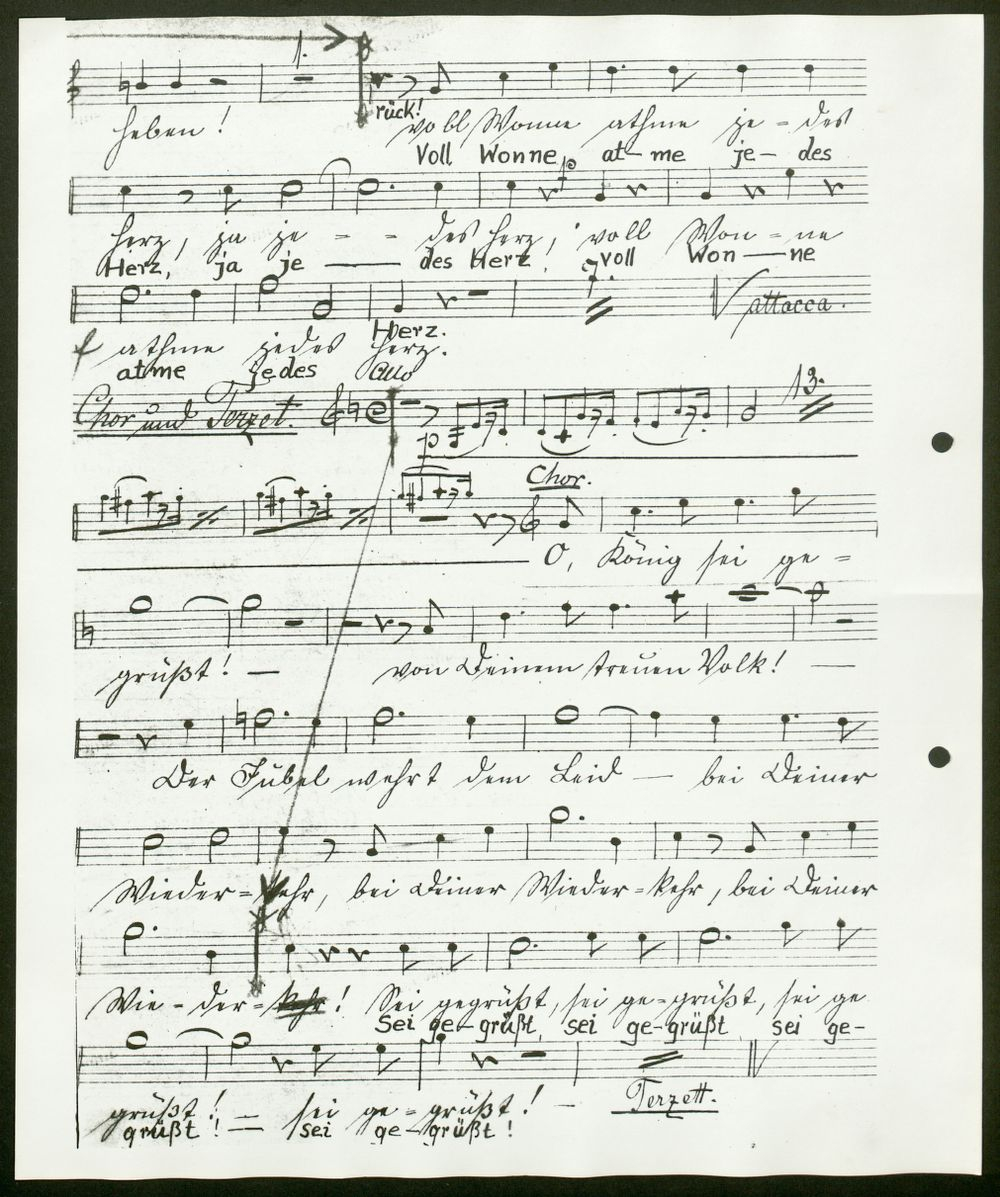 1.
rück!
heben! voll Wonne athme je - des
Voll Wonne at-me je- des
herz, ja je - - des herz, voll Won - ne
Herz, ja je des Herz! voll Won-ne
7.
attacca.
Herz.
f athme jedes herz.
atme jedes
Chor und Terzet.
13.
p
Chor.
O, König sei ge =
grüßt! — von Deinem treuen Volk! —
Der Jubel wehrt dem Leid — bei Deiner
Wieder = kehr, bei Deiner Wieder = kehr, bei Deiner
Wie - der = kehr! Sei gegrüßt, sei ge = grüßt, sei ge
Sei ge-grüßt, sei ge-grüßt sei ge-
Terzett.
grüßt! — sei ge = grüßt! —
grüßt! — sei ge-grüßt!